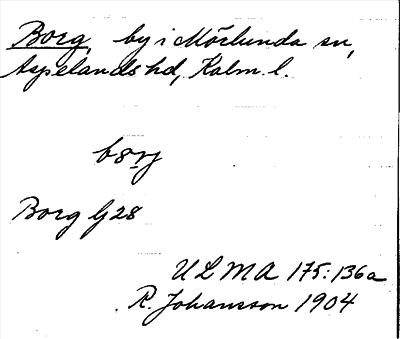 Borg, by i Mörlunda sn,
Aspelands hd, Kalm. l.
Borg G28
ULMA 175:136a
R. Johansson 1904